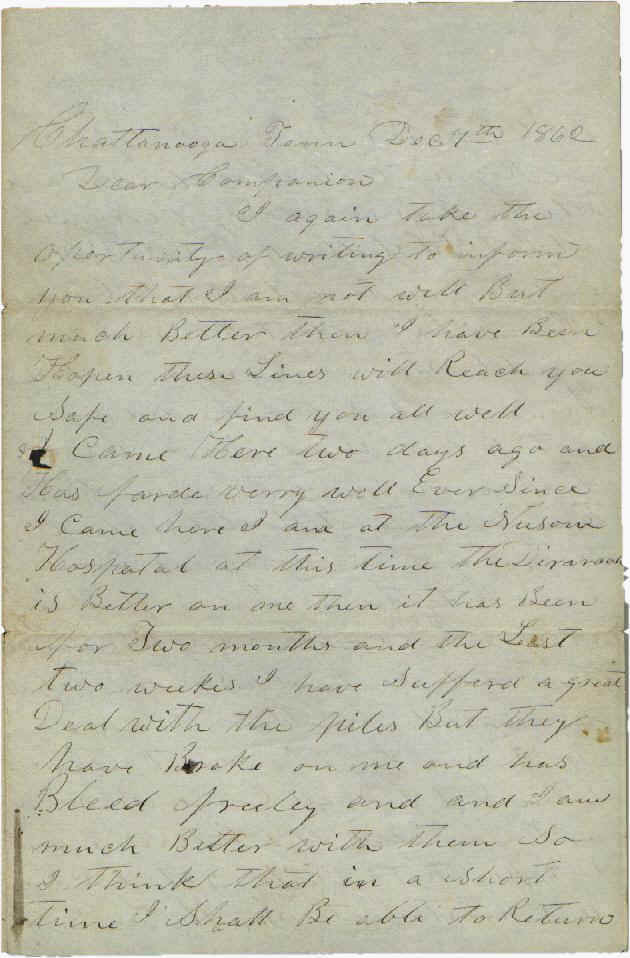 Chattanooga Tenn Dec 7th 1862
Dear Companion
I again take the
opertunity of writing to inform
you that I am not well But
much Better then I have Been
Hopen these Lines will Reach you
Safe and find you all well
I Came Here two days ago and
Has farde verry well Ever Since
I Came here I am at the Nusom
Hospatal at this time the
is Better on me then it has Been
for Two months and the Last
two weekes I have Sufferd a great
Deal with the piles But they
have Broke on me and has
Bleed freeley and and I am
much Better with them So
I think that in a short
time I Shall Be able to Return